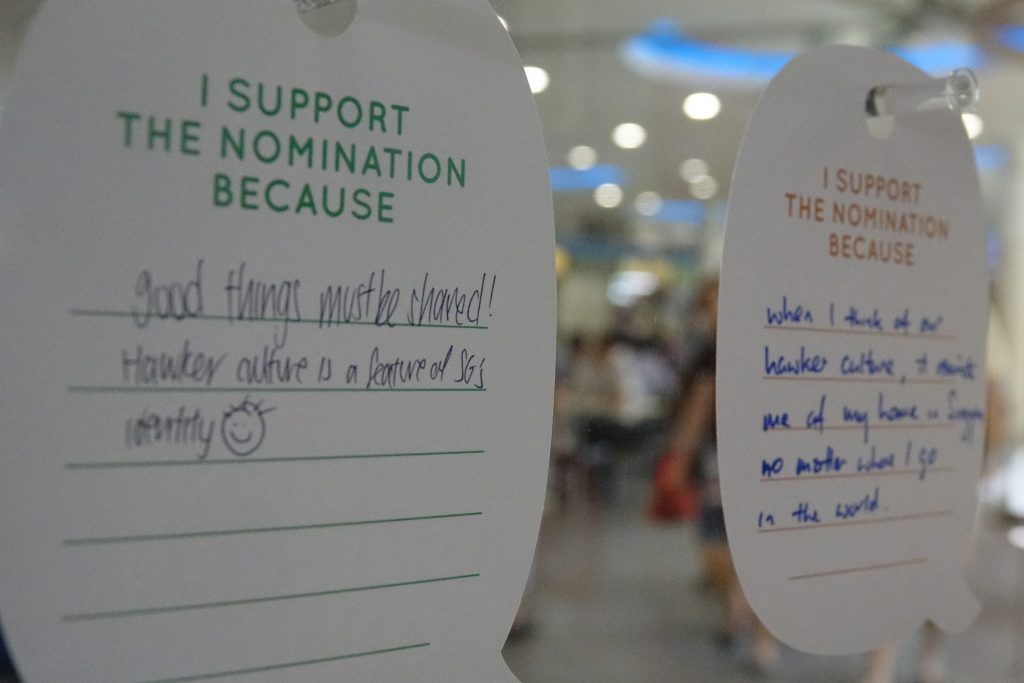 I SUPPORT
THE NOMINATION
BECAUSE
good things must be shared!
Hawker culture is a feature of SG's
identity
I SUPPORT
THE NOMINATION
BECAUSE
when I think of our
hawker culture, it
me of my home in
no matter where I go
in the world.